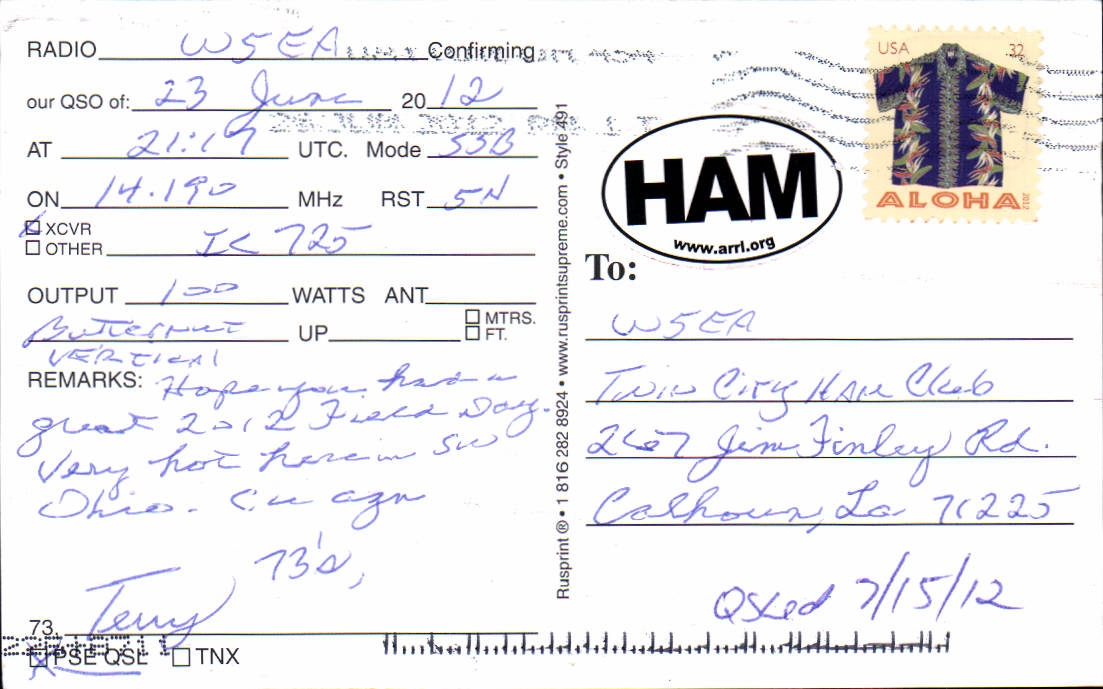 RADIO W5EA Confirming
our QSO of: 23 June 2012
AT 21:17 UTC. Mode SSB
ON 14.190 MHz RST 5N
XCVR
OTHER IC 725
OUTPUT 100 WATTS ANT
Butternut UP MTRS.
FT.
VERTICAL
REMARKS: Hope you had a
great 2012 Field Day.
Very hot here in SW
Ohio. Cu agn
73's,
73, Terry
PSE QSL TNX
Rusprint ® • 1 816 282 8924 • www.rusprintsupreme.com • Style 491
USA 32
ALOHA
2012
HAM
www.arrl.org
To:
W5EA
Twin City Ham Club
267 Jim Finley Rd.
Calhoun, La 71225
QSLed 7/15/12